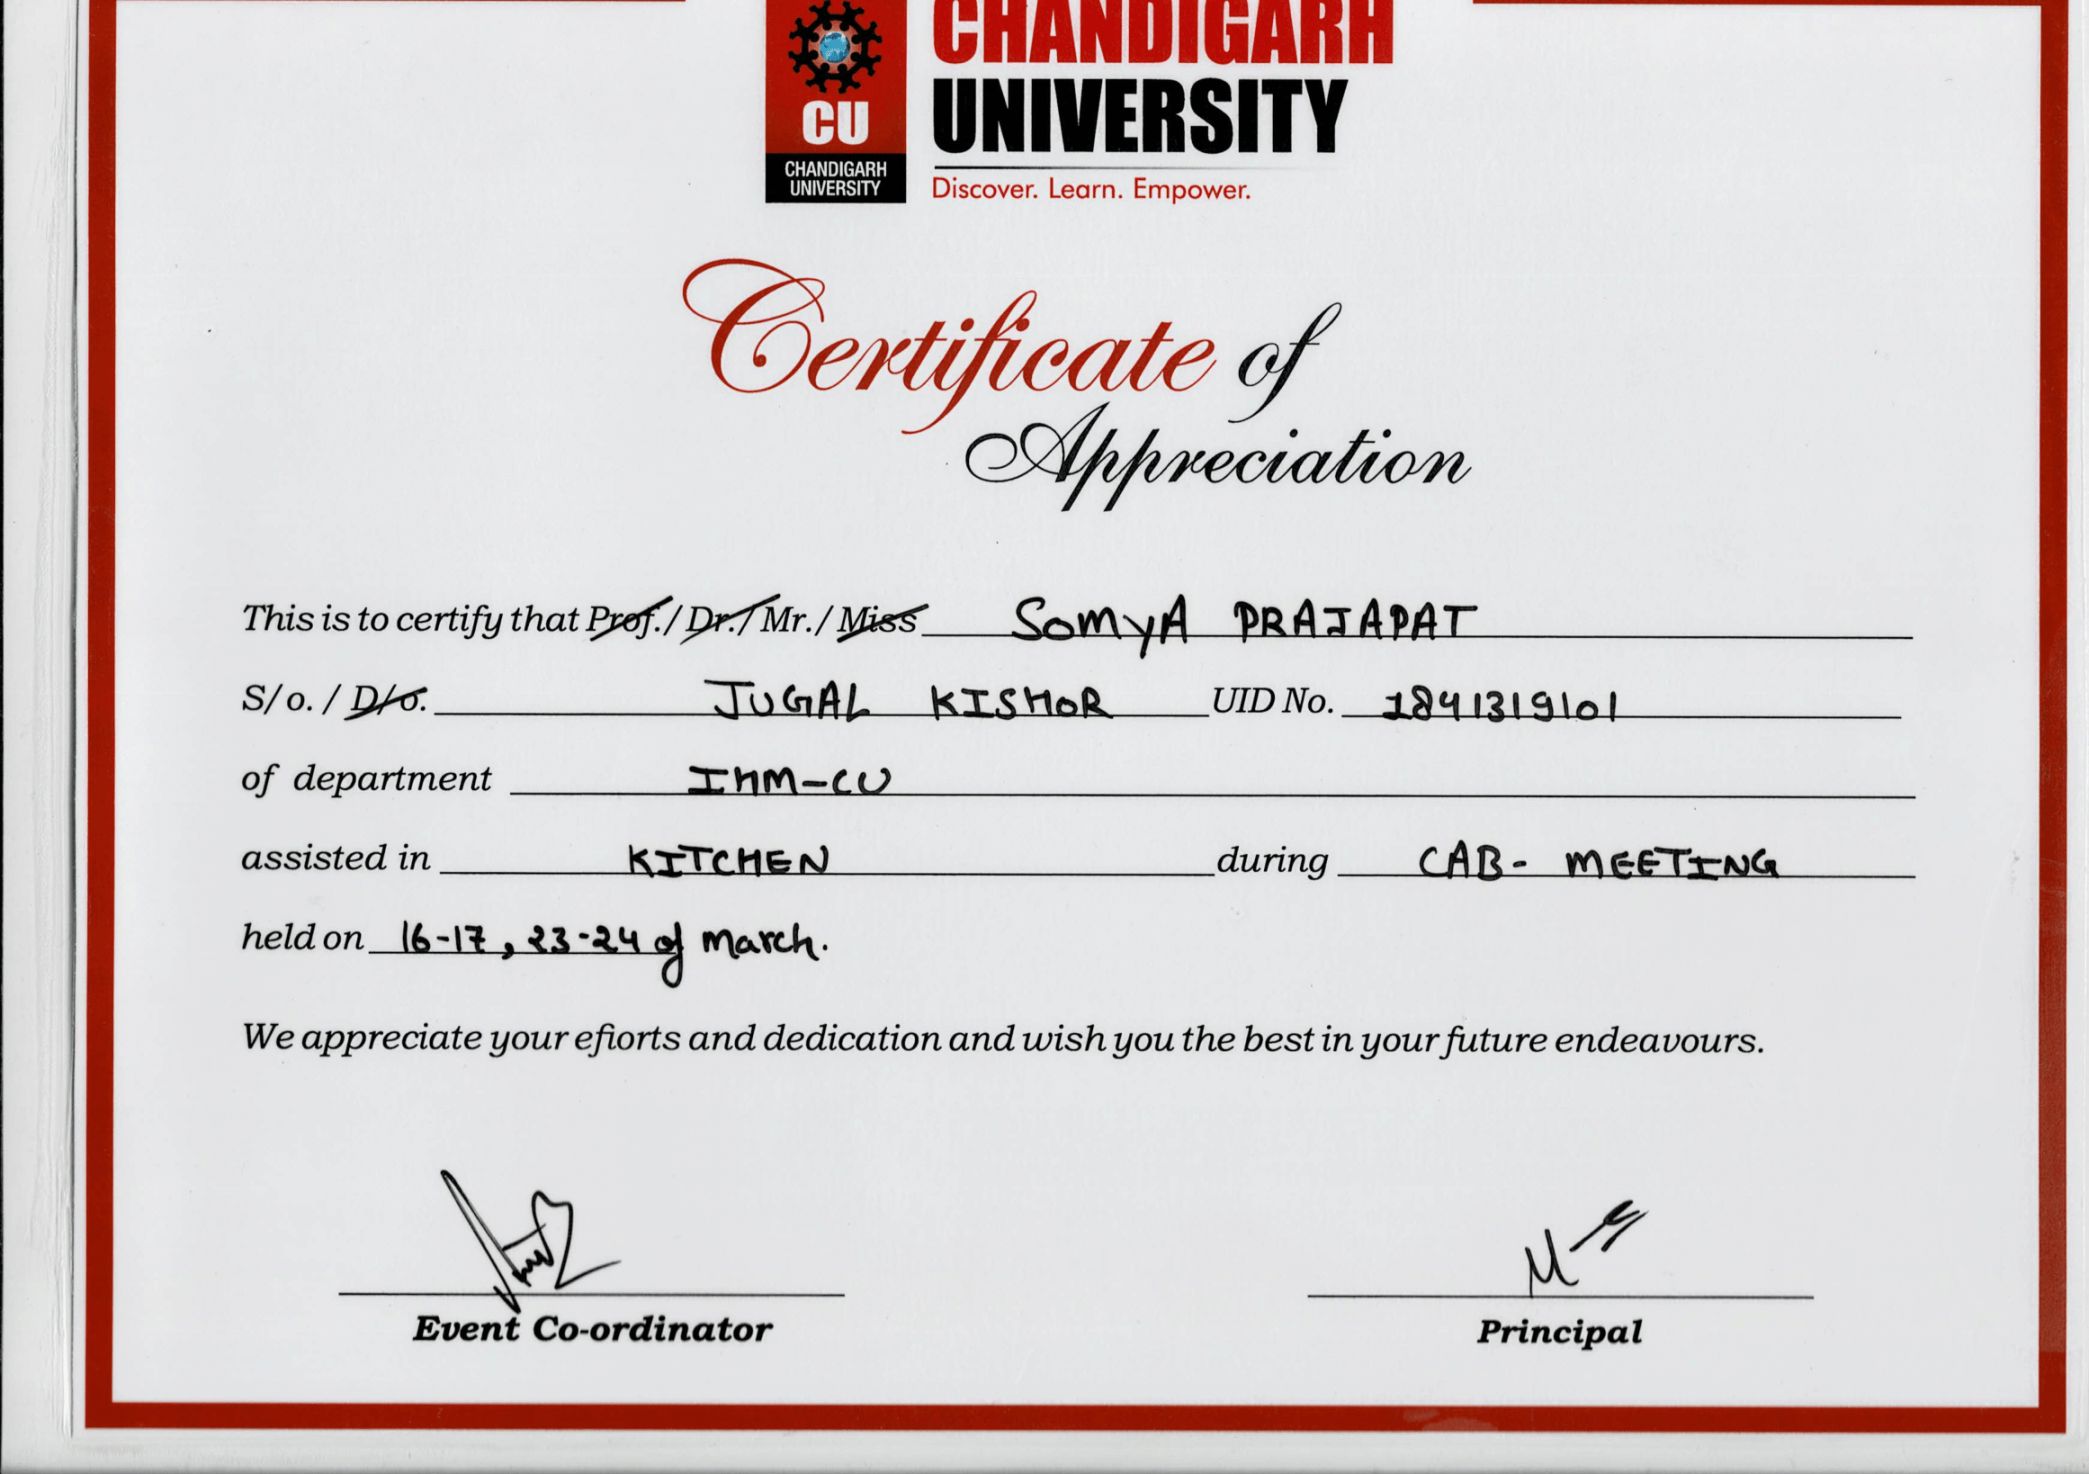 CHANDIGARH
UNIVERSITY
Discover. Learn. Empower.
CU
CHANDIGARH
UNIVERSITY
Certificate of
Appreciation
This is to certify that Prof./ Dr./ Mr./ Miss SOMYA PRAJAPAT
S/o. / D/o. JUGAL KISHOR UID No. 1841319101
of department IHM-CU
assisted in KITCHEN during CAB- MEETING
held on 16-17, 23-24 of March.
We appreciate your efiorts and dedication and wish you the best in your future endeavours.
Event Co-ordinator
Principal